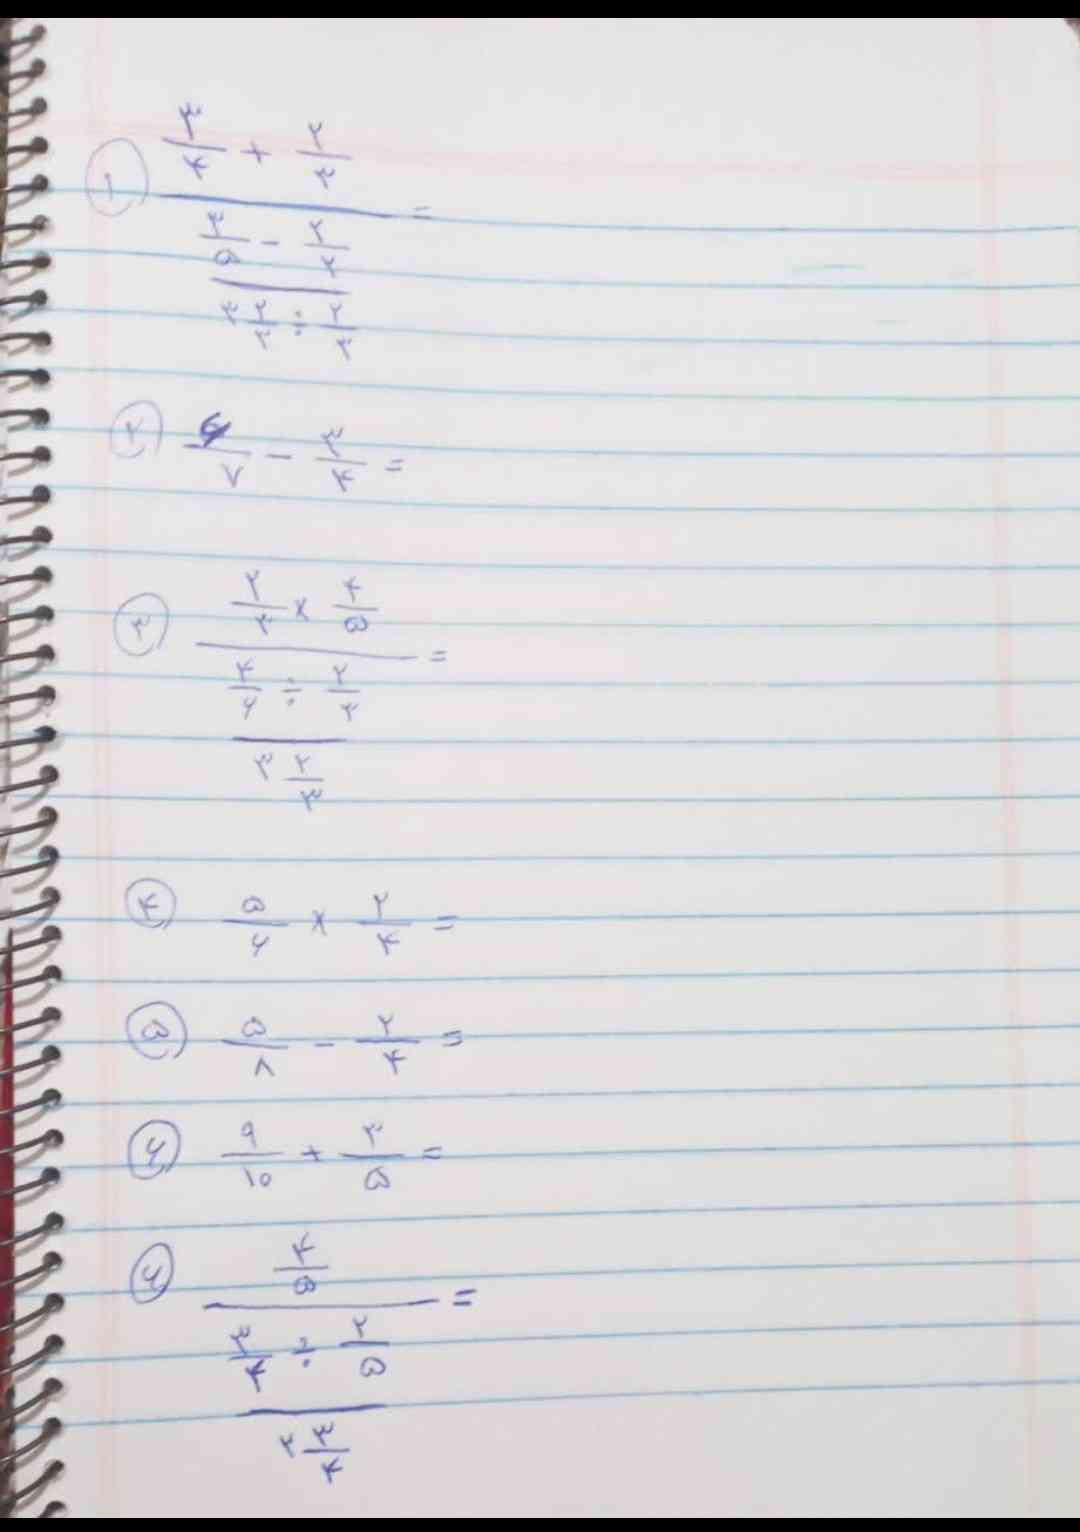 ① ۳/۴ + ۲/۳
=
۳/۵ - ۲/۲
۳ ۲/۳ ÷ ۲/۳
② ۶/۷ - ۳/۴ =
③ ۲/۳ × ۴/۵
=
۴/۶ ÷ ۲/۳
۳ ۲/۳
④ ۵/۶ × ۲/۴ =
⑤ ۵/۸ - ۲/۴ =
⑥ ۹/۱۰ + ۳/۵ =
⑥ ۴/۵
=
۳/۴ ÷ ۲/۵
۲ ۳/۴